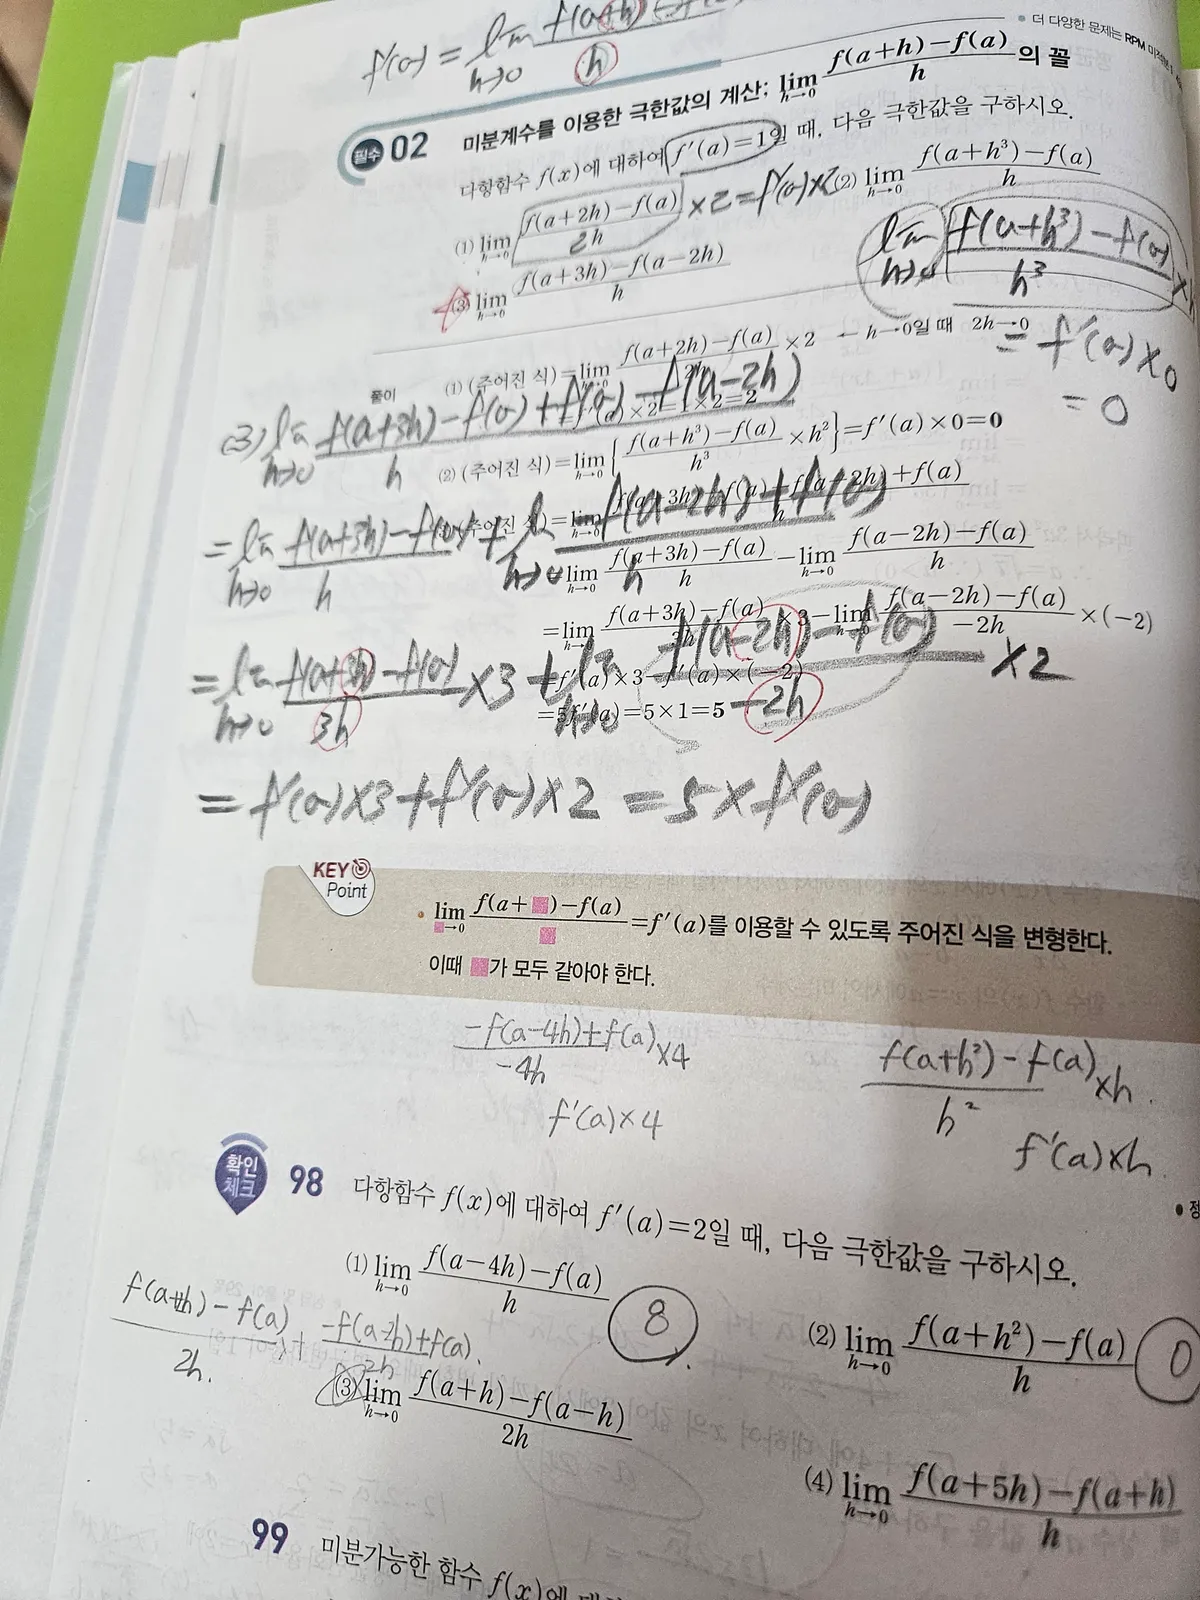 f'(a) = lim h→0 f(a+h)-f(a) / h
• 더 다양한 문제는 RPM 미적분
필수 02 미분계수를 이용한 극한값의 계산; lim h→0 f(a+h)-f(a) / h 의 꼴
다항함수 f(x)에 대하여 f'(a)=1일 때, 다음 극한값을 구하시오.
(1) lim h→0 f(a+2h)-f(a) / 2h ×2=f'(a)×2 (2) lim h→0 f(a+h³)-f(a) / h
lim h→0 f(a+h³)-f(a) / h³ ×
(3) lim h→0 f(a+3h)-f(a-2h) / h
= f'(a)×0
= 0
풀이 (1) (주어진 식)=lim h→0 f(a+2h)-f(a) / ×2 ← h→0일 때 2h→0
=f'(a)×2=1×2=2
(3) lim h→0 f(a+3h)-f(a)+f(a)-f(a-2h) / h
(2) (주어진 식)=lim h→0 { f(a+h³)-f(a) / h³ ×h² }=f'(a)×0=0
(주어진 식)=lim h→0 f(a+3h)-f(a)-f(a-2h)+f(a) / h
= lim h→0 f(a+3h)-f(a) / h + lim h→0 -f(a-2h)+f(a) / h
lim h→0 f(a+3h)-f(a) / h -lim h→0 f(a-2h)-f(a) / h
=lim h→0 f(a+3h)-f(a) / 3h ×3-lim h→0 f(a-2h)-f(a) / -2h ×(-2)
= lim h→0 f(a+3h)-f(a) / 3h ×3 + lim h→0 f(a-2h)-f(a) / -2h ×2
=f'(a)×3-f'(a)×(-2)
=5f'(a)=5×1=5
= f'(a)×3+f'(a)×2 = 5×f'(a)
KEY Point
• lim ■→0 f(a+■)-f(a) / ■ =f'(a)를 이용할 수 있도록 주어진 식을 변형한다.
이때 ■가 모두 같아야 한다.
-f(a-4h)+f(a) / -4h ×4
f'(a)×4
f(a+h²)-f(a) / h² ×h
f'(a)×h.
확인 체크 98 다항함수 f(x)에 대하여 f'(a)=2일 때, 다음 극한값을 구하시오.
(1) lim h→0 f(a-4h)-f(a) / h 8
(2) lim h→0 f(a+h²)-f(a) / h 0
f(a+h)-f(a) / 2h. + -f(a-h)+f(a). / 2h
(3) lim h→0 f(a+h)-f(a-h) / 2h
(4) lim h→0 f(a+5h)-f(a+h) / h
99 미분가능한 함수 f(x)에